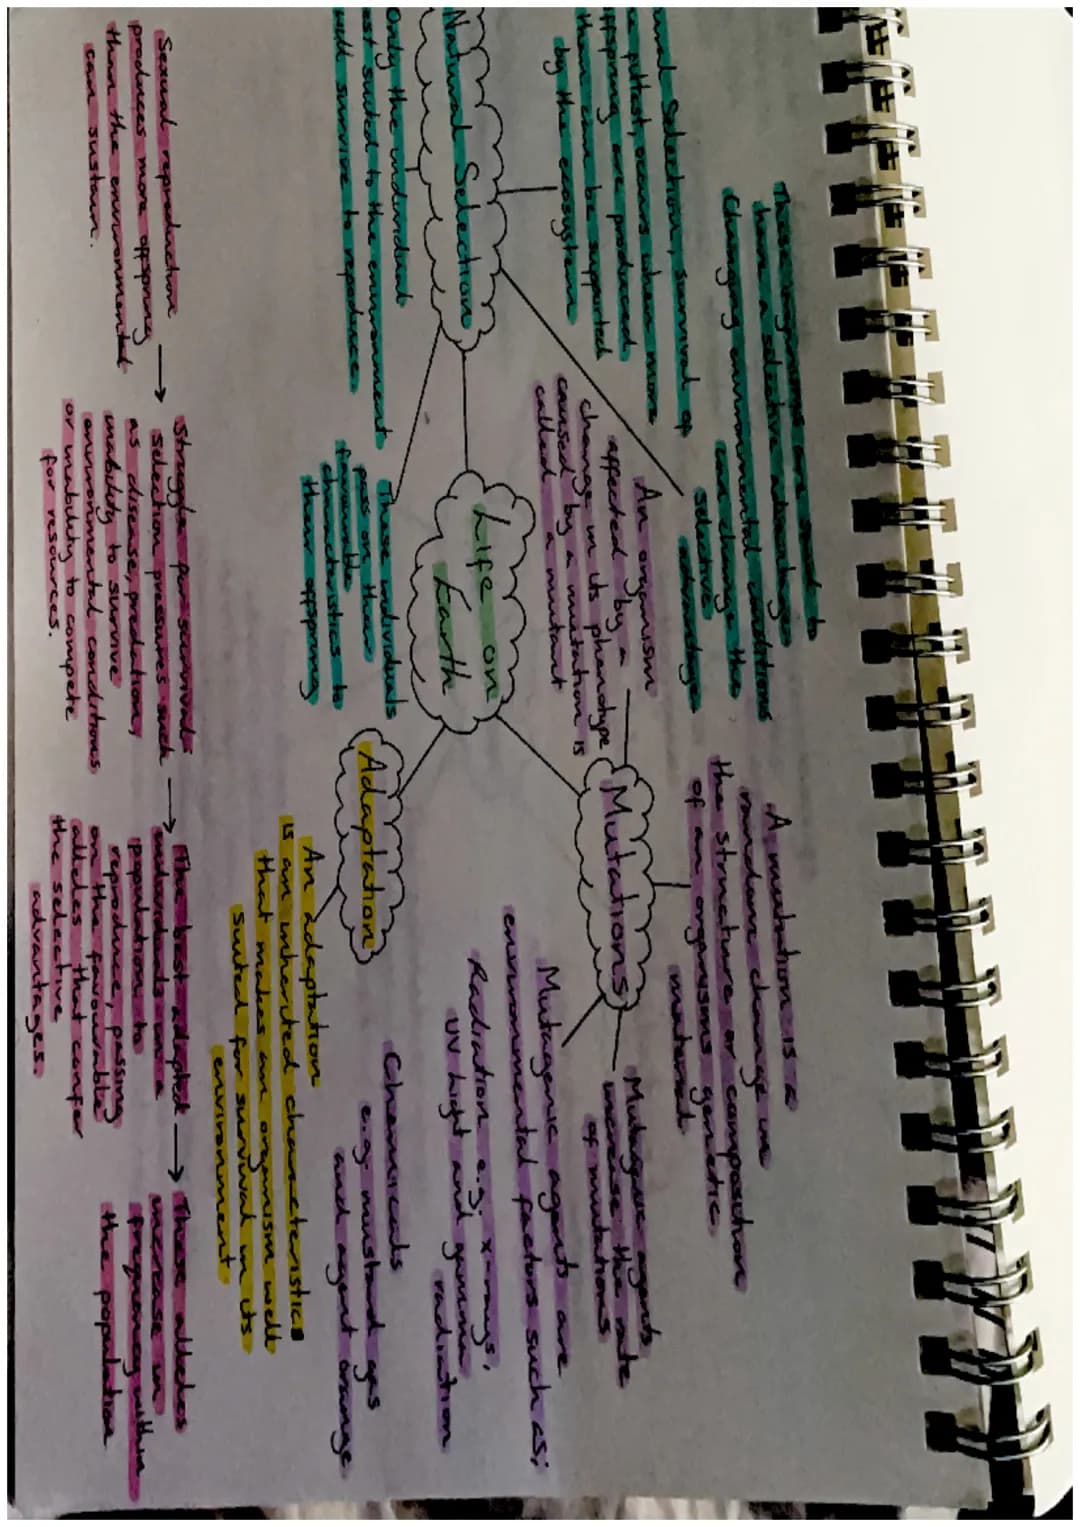 These organisms are said to
have a selective advantage
Changing environmental conditions
can change the
selective
advantage
Selection, survival of
fittest, occurs when more
offspring are produced
than can be supported
by the ecosystem
Natural Selection
Only the individual
best suited to the environment
will survive to reproduce
These individuals
pass on their
favourable
characteristics to
their offspring
Life on
Earth
An organism
affected by a
change in its phenotype
caused by a mutation is
called a mutant
Mutations
A mutation is a
random change in
the structure or composition
of an organisms genetic
material
Mutagenic agents
increase the rate
of mutations
Mutagenic agents are
environmental factors such as;
Radiation e.g. x-rays,
UV light and gamma
radiation
Chemicals
e.g. mustard gas
and agent orange
Adaptation
An adaptation
is an inherited characteristic
that makes an organism well
suited for survival in its
environment
Sexual reproduction
produces more offspring
than the environmental
can sustain.
→
Struggle for survival
selection pressures such
as disease, predation,
inability to survive
environmental conditions
or inability to compete
for resources.
→
The best adapted
individuals in a
population to
reproduce, passing
on the favourable
alleles that confer
the selective
advantages.
→
These alleles
increase in
frequency within
the population